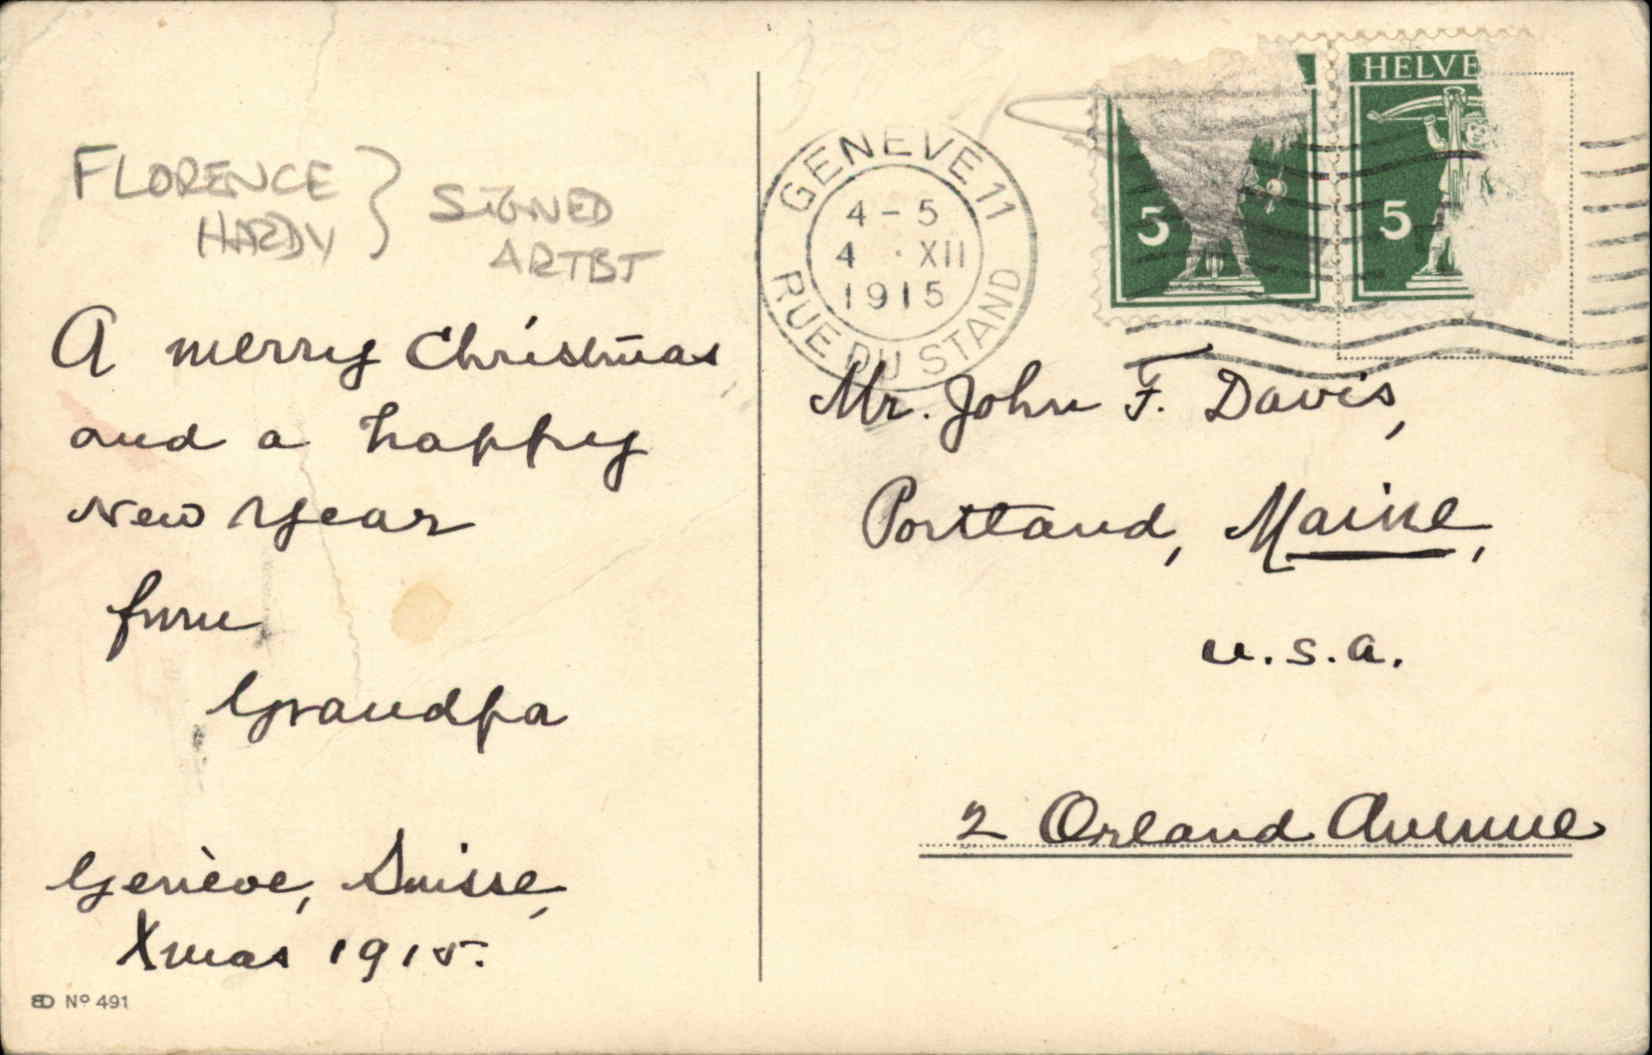 FLORENCE
HARDY } SIGNED
ARTIST
A merry Christmas
and a happy
New Year
from
Grandpa
Genève, Suisse,
Xmas 1915.
No 491
GENEVE 11
4-5
4 ·XII
1915
RUE DU STAND
5
HELVE
5
Mr. John F. Davis,
Portland, Maine,
U.S.A.
2 Orland Avenue